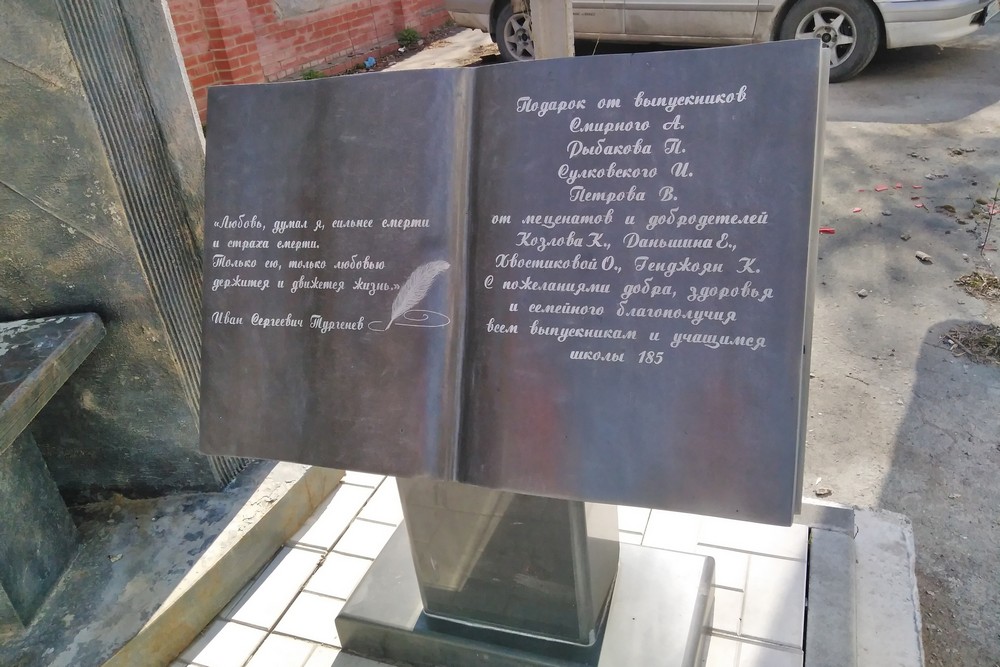 «Любовь, думал я, сильнее смерти
и страха смерти.
Только ею, только любовью
держится и движется жизнь.»
Иван Сергеевич Тургенев
Подарок от выпускников
Смирного А.
Рыбакова П.
Сулковского И.
Петрова В.
от меценатов и добродетелей
Козлова К., Даньшина Е.,
Хвостиковой О., Генджоян К.
С пожеланиями добра, здоровья
и семейного благополучия
всем выпускникам и учащимся
школы 185